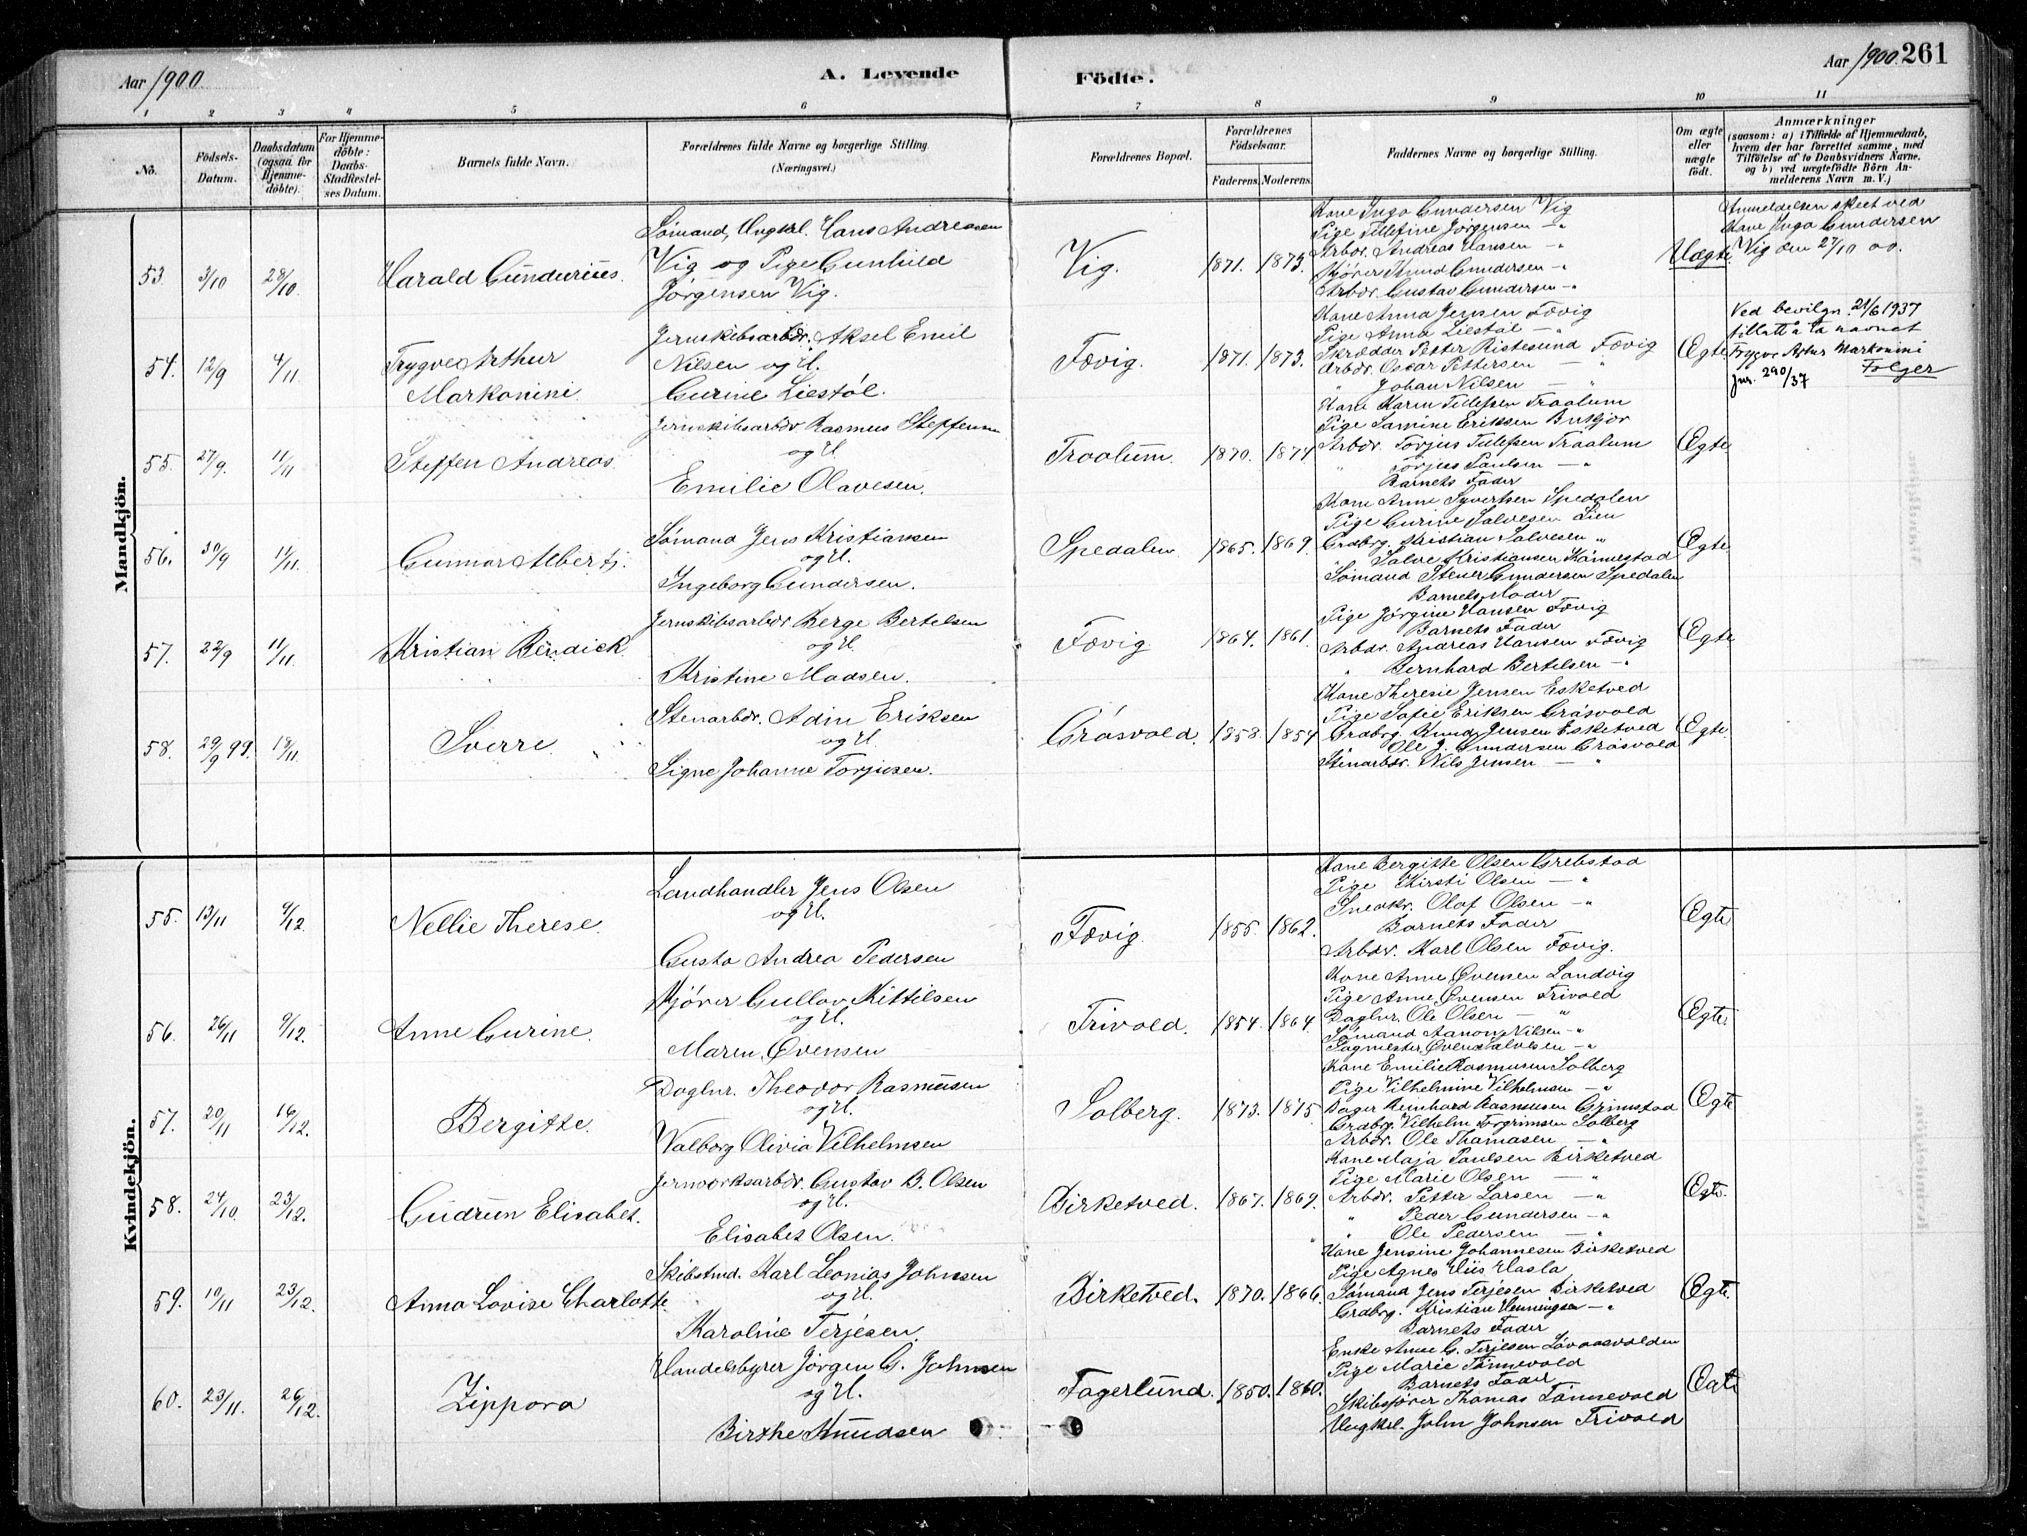 Aar 1900
A. Levende
Födte.
Aar 1900. 261
1 2 3 4 5 6 7 8 9 10 11
No.
Födsels-Datum.
Daabsdatum (ogsaa for Hjemmedöbte).
For Hjemmedöbte: Daabs-Stadfæstelses Datum.
Barnets fulde Navn.
Forældrenes fulde Navne og borgerlige Stilling. (Næringsvei.)
Forældrenes Bopæl.
Forældrenes Födselsaar.
Faderens. Moderens.
Faddernes Navne og borgerlige Stilling.
Om ægte eller uægte födt.
Anmærkninger
(saasom: a) i Tilfælde af Hjemmedaab, hvem der har forrettet samme, med Tilföielse af to Daabsvidners Navne, og b) ved uægtefödte Börn Anmelderens Navn m. V.)
Mandkjön.
53. 3/10 28/10 Harald Gunderius.
Sømand, Ungkl. Hans Andreasen
Vig og Pige Gunhild
Jørgensen Vig.
Vig. 1871. 1873.
Kone Inga Gundersen Vig
Pige Tilletine Jørgensen — "
Arbdr. Andreas Hansen — "
Kjører Knud Gundersen — "
Arbdr. Gustav Gundersen — "
Uægte
Anmeldelsen skeet ved
Kone Inga Gundersen
Vig den 27/10 00.
54. 12/9 4/11 Trygve Arthur
Markonini
Jernskibsarbdr. Aksel Emil
Nilsen og H.
Gurine Liestøl.
Fævig. 1871. 1873.
Kone Anna Jensen Fævig
Pige Anna Liestøl — "
Skrædder Petter Ristesund Fævig
Arbdr. Oscar Pettersen — "
" Johan Nilsen — "
Egte
Ved bevilgn. 21/6 1937
tillatt å ta navnet
Trygve Artur Markonini
Folger
jnr. 290/37
55. 27/9. 11/11 Steffen Andreas.
Jernskibsarbdr Rasmus Steffensen
og H.
Emilie Olavesen.
Traalum. 1870. 1874
Kone Karen Tellefsen Traalum
Pige Samine Eriksen
Arbdr. Torjus Tellefsen Traalum
" Torjus Paulsen — "
Barnets Fader
Egte
56. 30/9 11/11. Gunnar Albert.
Sømand Jens Kristiansen
og H.
Ingeborg Gundersen.
Spedalen. 1865. 1869.
Kone Anne Syvertsen Spedalen
Pige Gurine Salvesen Lien
Grdbrg. Kristian Salvesen "
" Salve Kristiansen
Sømand Stener Gundersen Spedalen
Egte
57. 22/9 11/11. Kristian Bendick.
Jernskibsarbdr Berge Bertelsen
og H.
Kristine Madsen.
Fævig 1864. 1861.
Barnets Moder
Pige Jørgine Hansen Fævig
Barnets Fader
Arbdr. Andreas Hansen Fævig
" Bernhard Bertelsen — "
Egte
58. 29/9 99. 18/11. Sverre.
Stenarbdr. Adin Eriksen
og H.
Signe Johanne Torjusen.
Gråsvold. 1858. 1854
Kone Theresie Jensen Esketved
Pige Sofie Eriksen Gråsvold
Grdbrg. Knud Jensen Esketved
" Ole J. Gundersen Gråsvold
Stenarbdr. Nils Jensen — "
Egte.
Kvindekjön.
55. 13/11 9/12. Nellie Therese.
Landhandler Jens Olsen
og H.
Gusta Andrea Pedersen
Fævig. 1855. 1862.
Kone Bergitte Olsen Grebstad
Pige Kirsti Olsen — "
Snedkr. Olaf Olsen — "
Barnets Fader
Arbdr. Karl Olsen Fævig.
Egte
56. 26/11 9/12. Anne Gurine.
Kjører Gullov Kittilsen
og H.
Maren Øvensen
Trivold. 1854. 1864
Kone Anne Øvensen Landvig
Pige Anne Øvensen Trivold
Daglnr. Ole Olsen — "
Sømand Aanon Nilsen — "
Sagmester Øvend Salvesen — "
Egte
57. 20/11 16/12. Bergitte.
Daglnr. Theodor Rasmusen
og H.
Valborg Olivia Vilhelmsen
Solberg. 1873. 1875
Kone Emilie Rasmusen Solberg
Pige Vilhelmine Vilhelmsen — "
Bager Reinhard Rasmusen Grimstad
Grdbrg. Vilhelm Torgrimsen Solberg
Arbdr. Ole Thomasen — "
Egte
58. 24/10. 23/12. Gudrun Elisabet.
Jernværksarbdr. Gustav B. Olsen
og H.
Elisabet Olsen.
Birketved. 1867. 1869.
Kone Maja Paulsen Birketved
Pige Marie Olsen — "
Arbdr. Petter Larsen — "
" Peder Gundersen — "
" Ole Pedersen — "
Egte.
59. 10/11 23/12. Anna Lovise Charlotte
Skibstmd. Karl Leonias Johnsen
og H.
Karoline Terjesen.
Birketved. 1870. 1866.
Kone Jensine Johannesen Birketved
Pige Agnes Hasla
Sømand Jens Terjesen Birketved
Grdbrg. Kristian Henningsen — "
Barnets Fader
Egte.
60. 23/11. 26/12. Zippora
Handelsbyrer Jørgen G. Johnsen
og H.
Birthe Knudsen
Fagerlund. 1850. 1860.
Enke Anne G. Terjesen Løvaasvolden
Pige Marie Tønnevold
Barnets Fader
Skibsfører Thomas Tønnevold
Ungkl. John Johnsen Trivold
Egte